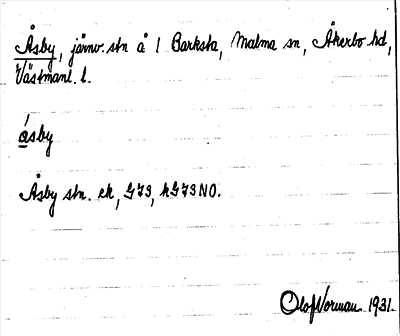 Åsby, järnv. stn å 1 Barksta, Malma sn, Åkerbo hd,
Västmanl. l.
åsby
Åsby stn. ek, G73, kG73NO.
Olof Norman 1931.